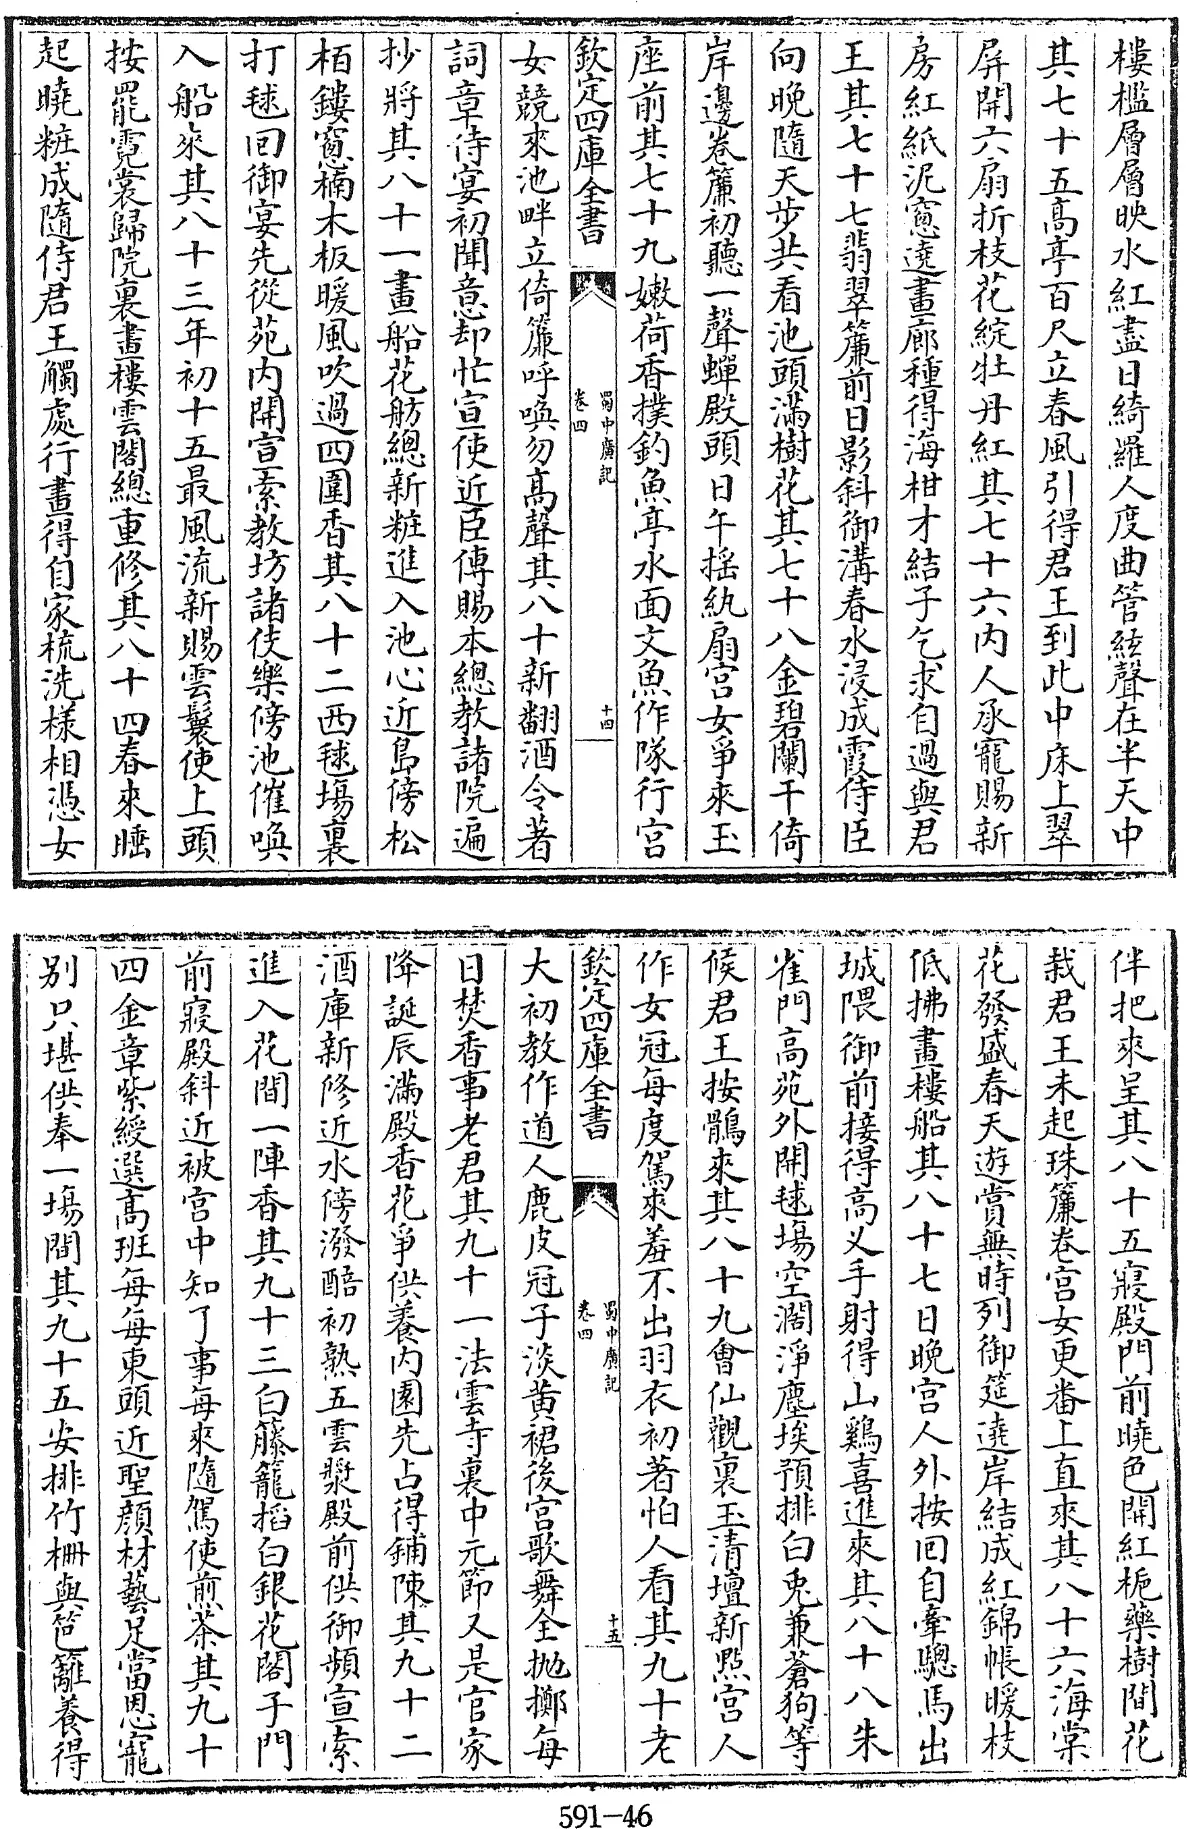 樓檻層層映水紅盡日綺羅人度曲管絃聲在半天中
其七十五高亭百尺立春風引得君王到此中床上翠
屏開六扇折枝花綻牡丹紅其七十六内人承寵賜新
房紅紙泥窻遶畫廊種得海柑才結子乞求自過與君
王其七十七翡翠簾前日影斜御溝春水浸成霞侍臣
向晚隨天步共看池頭滿樹花其七十八金碧闌干倚
岸邊卷簾初聽一聲蟬殿頭日午揺紈扇宫女爭來玉
座前其七十九嫩荷香撲釣魚亭水面文魚作隊行宫
欽定四庫全書
蜀中廣記
卷四
十四
女競來池畔立倚簾呼喚勿高聲其八十新翻酒令著
詞章侍宴初聞意却忙宣使近臣傳賜本總教諸院遍
抄將其八十一畫船花舫總新粧進入池心近島傍松
栢鏤窻楠木板暖風吹過四圍香其八十二西毬場裏
打毬回御宴先從苑内開宣索教坊諸伎樂傍池催喚
入船來其八十三年初十五最風流新賜雲鬟使上頭
按罷霓裳歸院裏畫樓雲閣總重修其八十四春來睡
起曉粧成隨侍君王觸處行畫得自家梳洗様相憑女
伴把來呈其八十五寢殿門前曉色開紅梔藥樹間花
栽君王未起珠簾卷宫女更番上直來其八十六海棠
花發盛春天遊賞無時列御筵遶岸結成紅錦帳暖枝
低拂畫樓船其八十七日晚宫人外按回自牽驄馬出
城隈御前接得高义手射得山鷄喜進來其八十八朱
雀門高苑外開毬場空濶淨塵埃預排白兎兼蒼狗等
候君王按鶻來其八十九會仙觀裏玉清壇新㸃宫人
作女冠每度駕來羞不出羽衣初著怕人看其九十老
欽定四庫全書
蜀中廣記
卷四
十五
大初教作道人鹿皮冠子淡黄裙後宫歌舞全抛擲每
日焚香事老君其九十一法雲寺裏中元節又是官家
降誕辰滿殿香花爭供養内園先占得鋪陳其九十二
酒庫新修近水傍潑醅初熟五雲漿殿前供御頻宣索
進入花間一陣香其九十三白籐籠搯白銀花閤子門
前寢殿斜近被宫中知了事每來隨駕使煎茶其九十
四金章紫綬選高班每每東頭近聖顔材藝足當恩寵
别只堪供奉一場間其九十五安排竹柵與笆籬養得
591-46